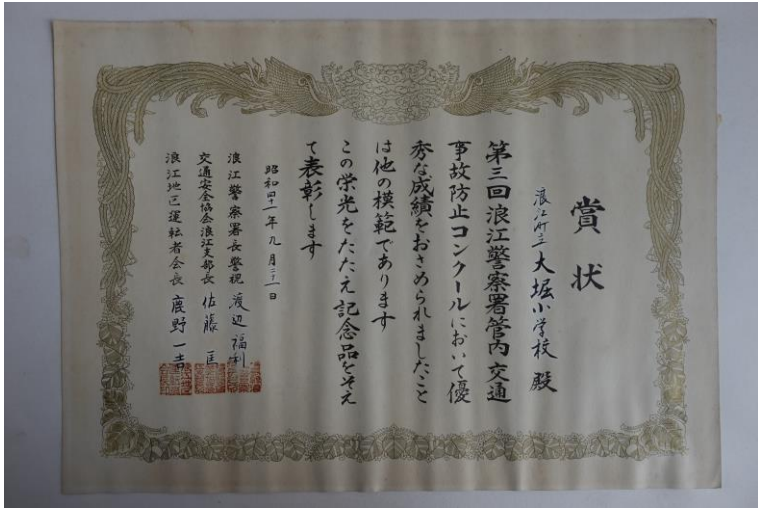 賞状
浪江町立大堀小学校 殿
第三回浪江警察署管内交通
事故防止コンクールにおいて優
秀な成績をおさめられましたこと
は他の模範であります
この栄光をたたえ記念品をそえ
て表彰します
昭和四十一年九月二十一日
浪江警察署長警視 渡辺福
交通安全協会浪江支部長 佐藤匡
浪江地区運転者会長 鹿野一吉